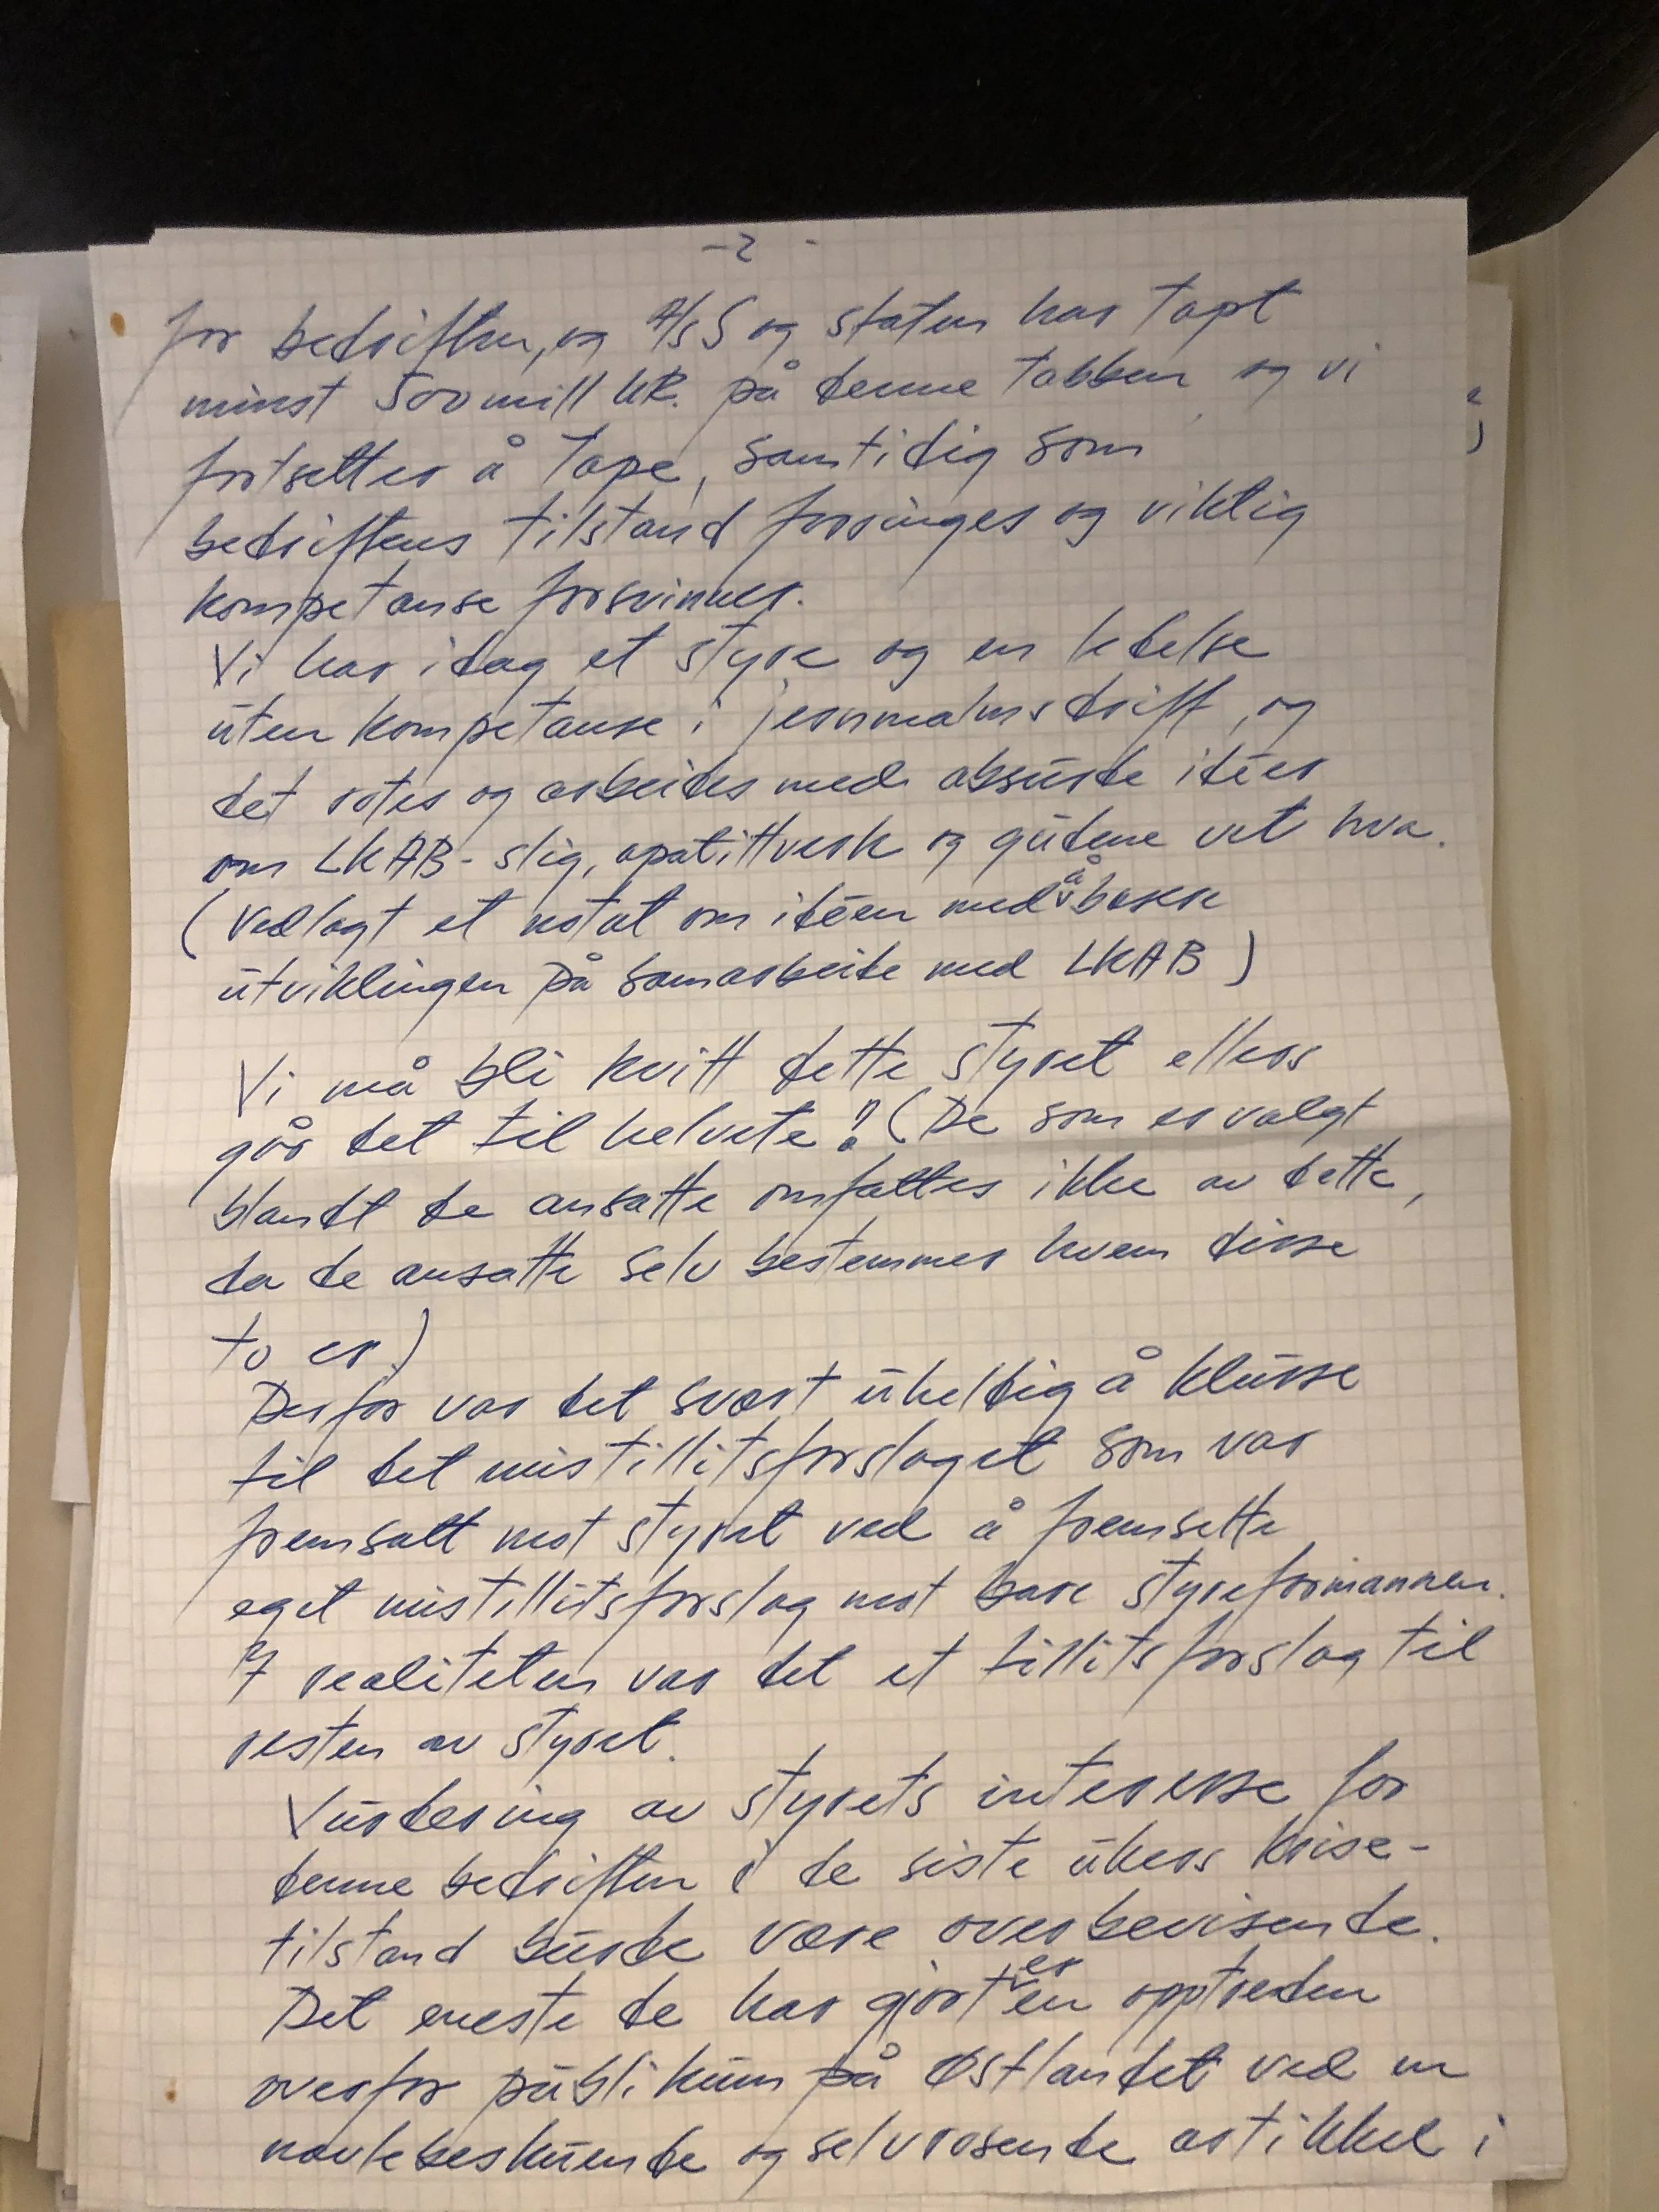 -2 -
for bedriften, og A/S S og staten har tapt
minst 500 mill kR. på denne tabben og vi
fortsetter å tape, samtidig som
bedriftens tilstand forringes og viktig
kompetanse forsvinner.
Vi har idag et styre og en ledelse
uten kompetanse i jernmalmsdrift, og
det rotes og arbeides med absurde idéer
om LKAB-slig, apatittverk og gudene vet hva.
(Vedlagt et notat om idéen med å basere
utviklingen på samarbeide med LKAB)
Vi må bli kvitt dette styret ellers
går det til helvete! (De som er valgt
blandt de ansatte omfattes ikke av dette,
da de ansatte selv bestemmer hvem disse
to er)
Derfor var det svært uheldig å klusse
til det mistillitsforslaget som var
fremsatt mot styret ved å fremsette
eget mistillitsforslag mot bare styreformannen.
I realiteten var det et tillitsforslag til
resten av styret.
Vurdering av styrets interesse for
denne bedriften i de siste ukers krise-
tilstand burde være overbevisende.
Det eneste de har gjort er en opptreden
overfor publikum på Østlandet ved en
navlebeskuende og selvrosende artikkel i